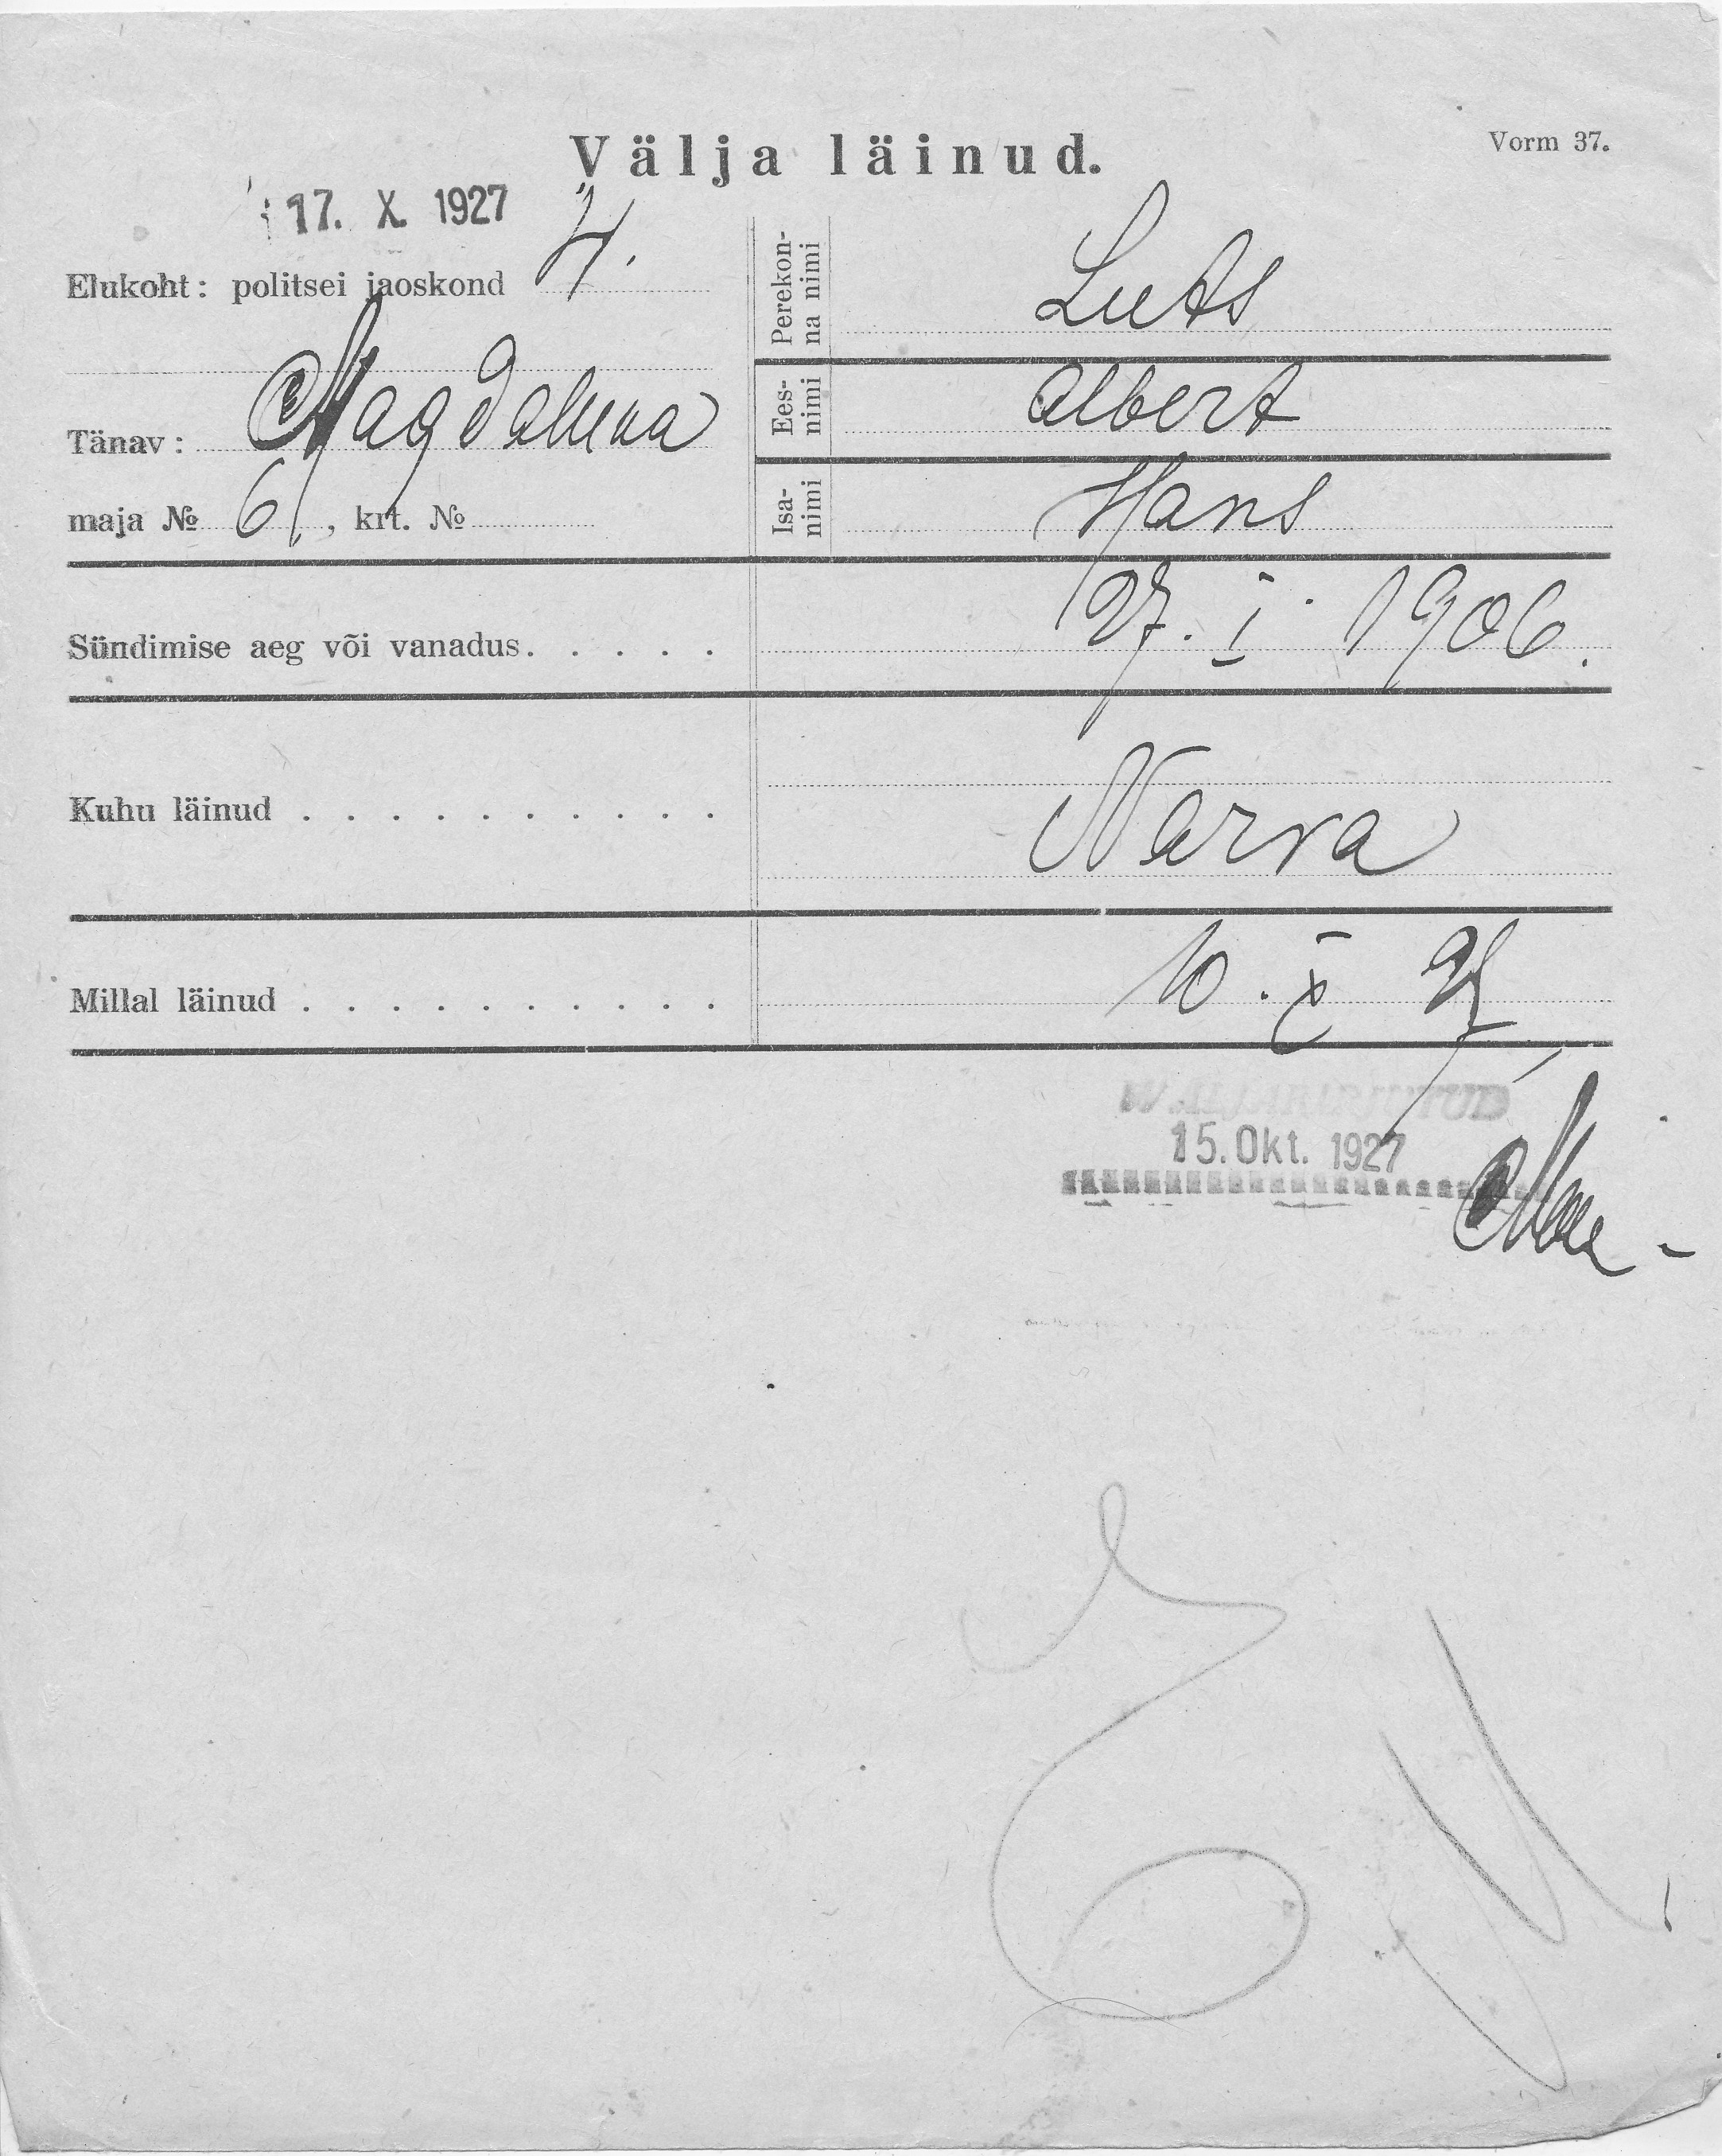 Välja läinud.
Vorm 37.
17. X. 1927
Elukoht: politsei jaoskond 4.
Tänav: Magdaleena
maja № 6, krt. №
Perekon-
na nimi
Luts
Ees-
nimi
Albert
Isa-
nimi
Hans
Sündimise aeg või vanadus. . . . .
27. I. 1906.
Kuhu läinud . . . . . . . . . .
Narva
Millal läinud . . . . . . . . . .
10. X 27
15. Okt. 1927